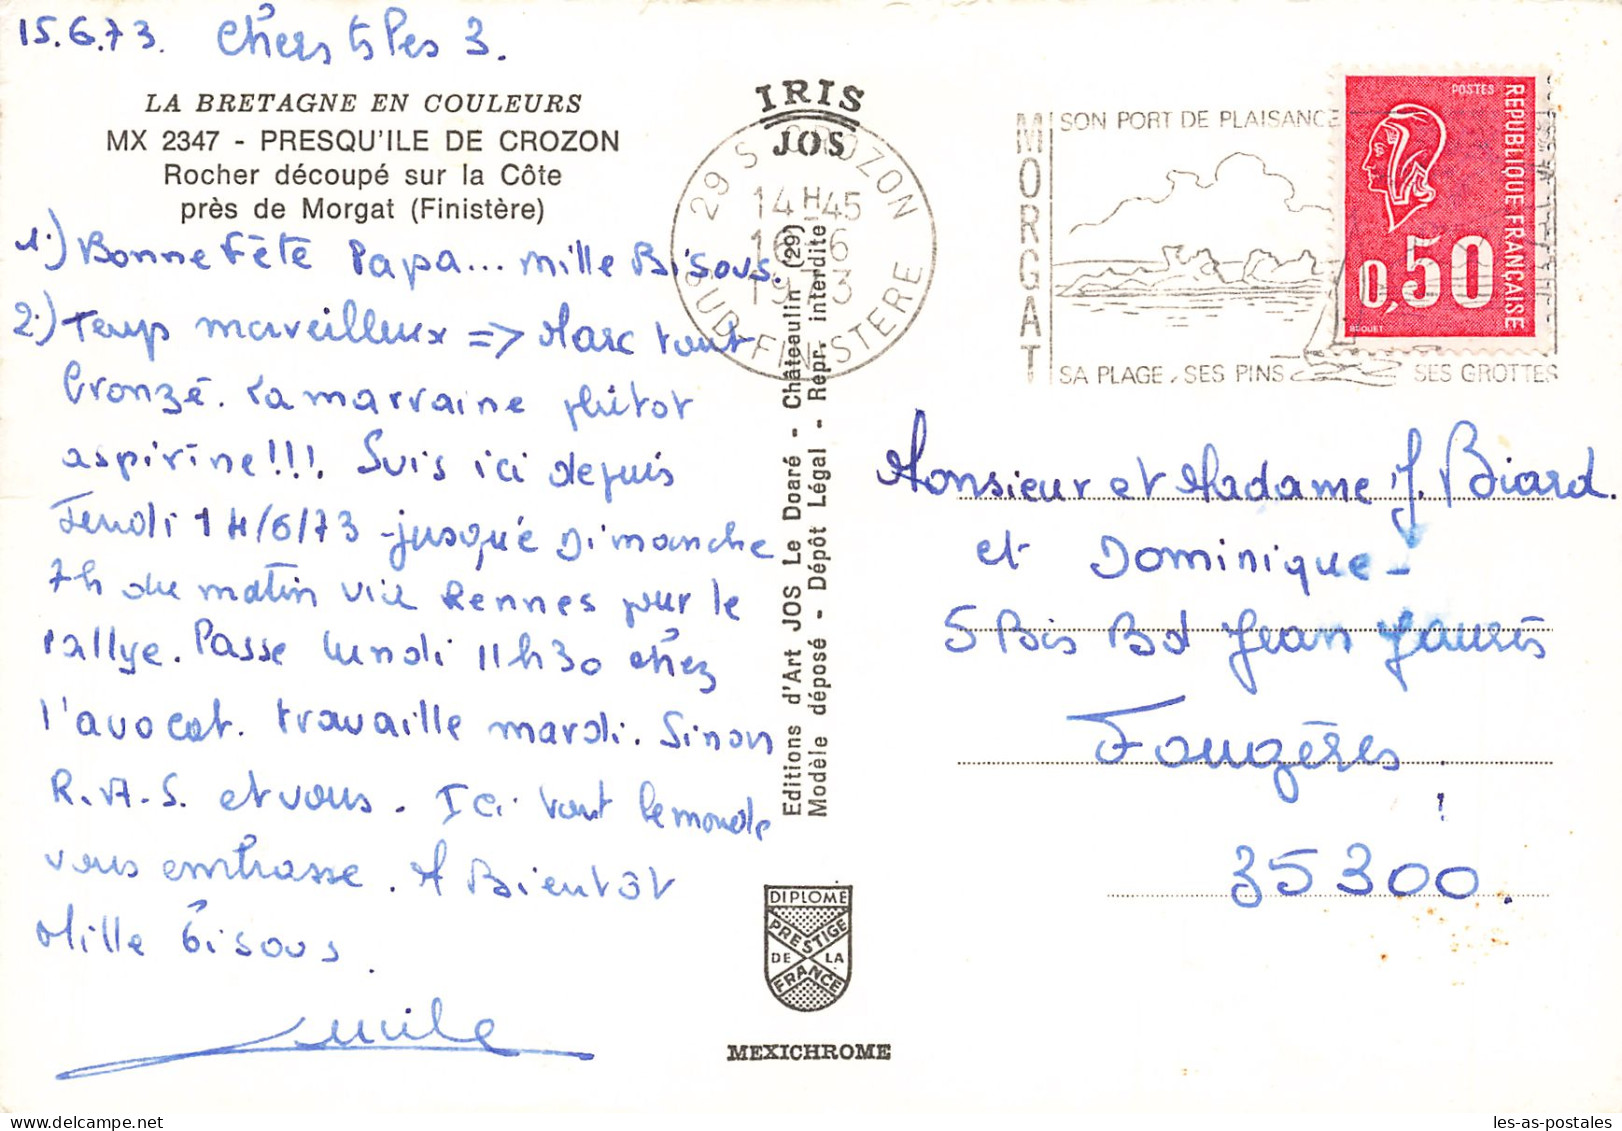 15.6.73. Chers ts les 3.
LA BRETAGNE EN COULEURS
MX 2347 - PRESQU'ILE DE CROZON
Rocher découpé sur la Côte
près de Morgat (Finistère)
1.) Bonne Fête Papa... mille Bisous.
2.) Temps merveilleux => Marc tout
bronzé. La marraine plutôt
aspirine!!!. Suis ici depuis
Jeudi 14/6/73 - jusque Dimanche
7h du matin Rennes pour le
rallye. Passe lundi 11h30 chez
l'avocat. travaille mardi. Sinon
R.A.S. et vous. Ici tout le monde
vous embrasse. A Bientôt
Mille bisous.
Lucile
IRIS
JOS
29 S CROZON
14H45
16-6
1973
SUD-FINISTERE
Editions d'Art JOS Le Doaré - Châteaulin (29)
Modèle déposé - Dépôt Légal - Repr. interdite
DIPLOME
PRESTIGE
DE LA
FRANCE
MEXICHROME
MORGAT
SON PORT DE PLAISANCE
SA PLAGE, SES PINS
SES GROTTES
POSTES
REPUBLIQUE FRANÇAISE
0,50
BEQUET
Monsieur et Madame J. Biard.
et Dominique -
5 Bis Bd Jean Jaurès
Fougères
35300.
les-as-postales